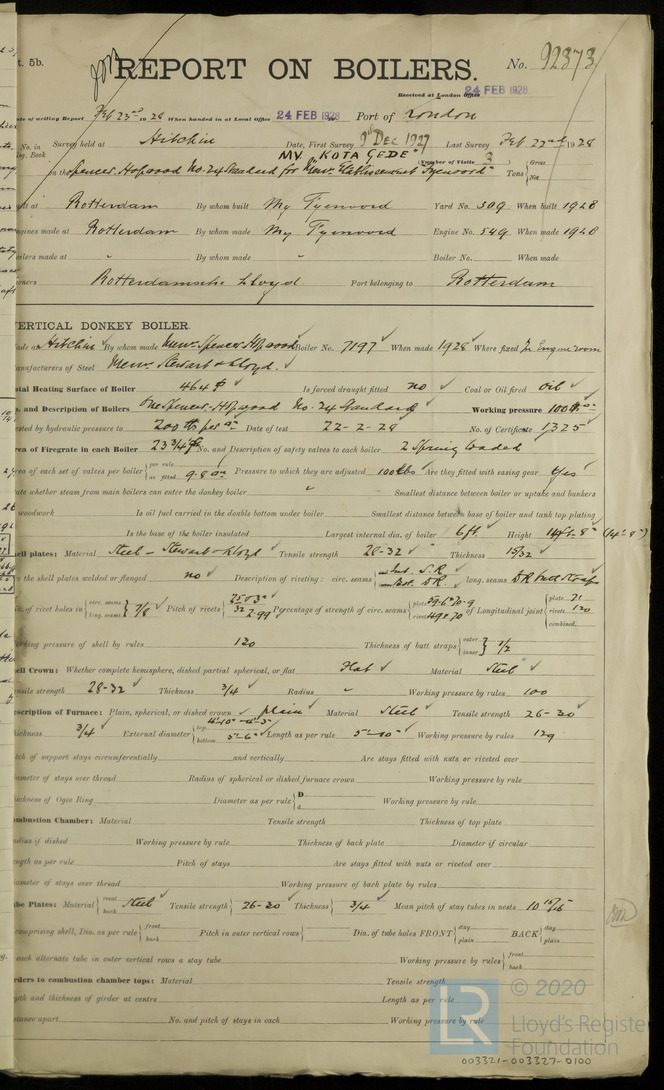 t. 5b.
REPORT ON BOILERS.
No. 92373
Received at London Office 24 FEB 1928
ate of writing Report Feb 23rd 1928 When handed in at Local Office 24 FEB 1928 Port of London
No. in Survey held at Hitchin Date, First Survey 9th DEC 1927 Last Survey Feb 22nd 1928
Book MV "KOTA GEDE" (Number of Visits 3) Gross
on the Spencer Hopwood No. 24 Standard for Tons Net
at Rotterdam By whom built Mij Fyenoord Yard No. 309 When built 1928
ngines made at Rotterdam By whom made Mij Fyenoord Engine No. 549 When made 1928
oilers made at " By whom made " Boiler No. When made
ners Rotterdamsche Lloyd Port belonging to Rotterdam
VERTICAL DONKEY BOILER.
ade at Hitchin By whom made Messrs Spencer Hopwood Boiler No. 7197 When made 1928 Where fixed In Engine room
anufacturers of Steel Messrs Stewart & Lloyd.
otal Heating Surface of Boiler 464 Is forced draught fitted no Coal or Oil fired oil
and Description of Boilers One Spencer-Hopwood No. 24 Standard Working pressure 100
ested by hydraulic pressure to 200 lbs per Date of test 22-2-28 No. of Certificate 1325
rea of Firegrate in each Boiler 23 3/4 No. and Description of safety valves to each boiler 2 Spring loaded
rea of each set of valves per boiler per rule as fitted 9.8 Pressure to which they are adjusted 100 lbs Are they fitted with easing gear Yes
ate whether steam from main boilers can enter the donkey boiler " Smallest distance between boiler or uptake and bunkers
woodwork Is oil fuel carried in the double bottom under boiler Smallest distance between base of boiler and tank top plating
Is the base of the boiler insulated Largest internal dia. of boiler 6 ft. Height 14 ft. 8" (14'-8")
ell plates: Material Steel - Stewart & Lloyd Tensile strength 28-32 Thickness 15/32
e the shell plates welded or flanged no Description of riveting: circ. seams Int. S.R. D.R. long. seams D R butt Straps
ia. of rivet holes in circ. seams long. seams 7/8 Pitch of rivets 2.99 Percentage of strength of circ. seams plate rivets of Longitudinal joint plate 71 rivets 120 combined.
orking pressure of shell by rules 120 Thickness of butt straps outer inner 1/2
ell Crown: Whether complete hemisphere, dished partial spherical, or flat Flat Material Steel
ensile strength 28-32 Thickness 3/4 Radius " Working pressure by rules 100
escription of Furnace: Plain, spherical, or dished crown plain Material Steel Tensile strength 26-30
hickness 3/4 External diameter top 4'-10" - 4'-3" bottom 5'-6" Length as per rule 5'-10" Working pressure by rules 129
tch of support stays circumferentially and vertically Are stays fitted with nuts or riveted over
iameter of stays over thread Radius of spherical or dished furnace crown Working pressure by rule
hickness of Ogee Ring Diameter as per rule D d Working pressure by rule
ombustion Chamber: Material Tensile strength Thickness of top plate
adius if dished Working pressure by rule Thickness of back plate Diameter if circular
ength as per rule Pitch of stays Are stays fitted with nuts or riveted over
iameter of stays over thread Working pressure of back plate by rules
be Plates: Material front back Steel Tensile strength 26-30 Thickness 3/4 Mean pitch of stay tubes in nests 10 15/16
comprising shell, Dia. as per rule front back Pitch in outer vertical rows Dia. of tube holes FRONT stay plain BACK stay plain
each alternate tube in outer vertical rows a stay tube Working pressure by rules front back
rders to combustion chamber tops: Material Tensile strength
epth and thickness of girder at centre Length as per rule
istance apart No. and pitch of stays in each Working pressure by rule
LR © 2020
Lloyd's Register
Foundation
003321-003327-0100